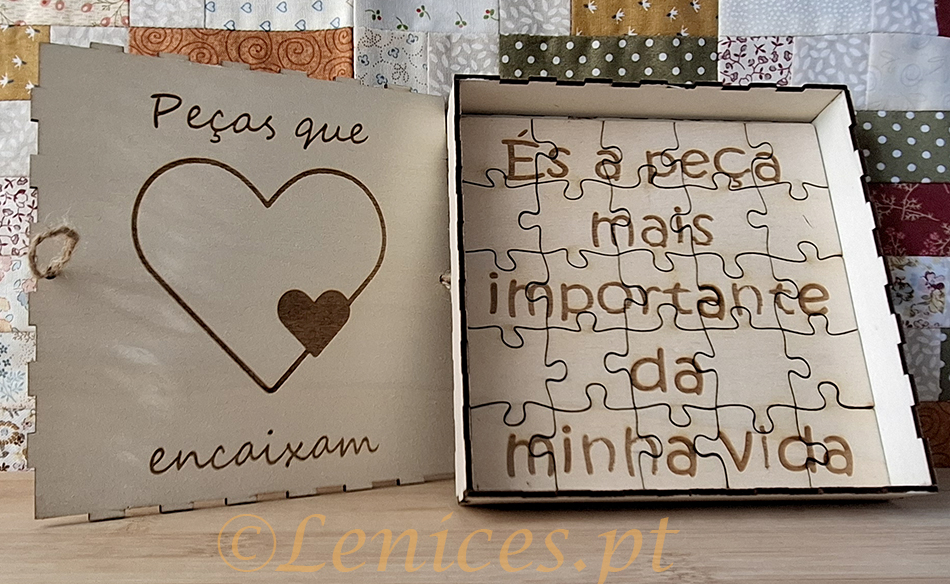 Peças que
encaixam
És a peça
mais
importante
da
minha vida
©Lenices.pt